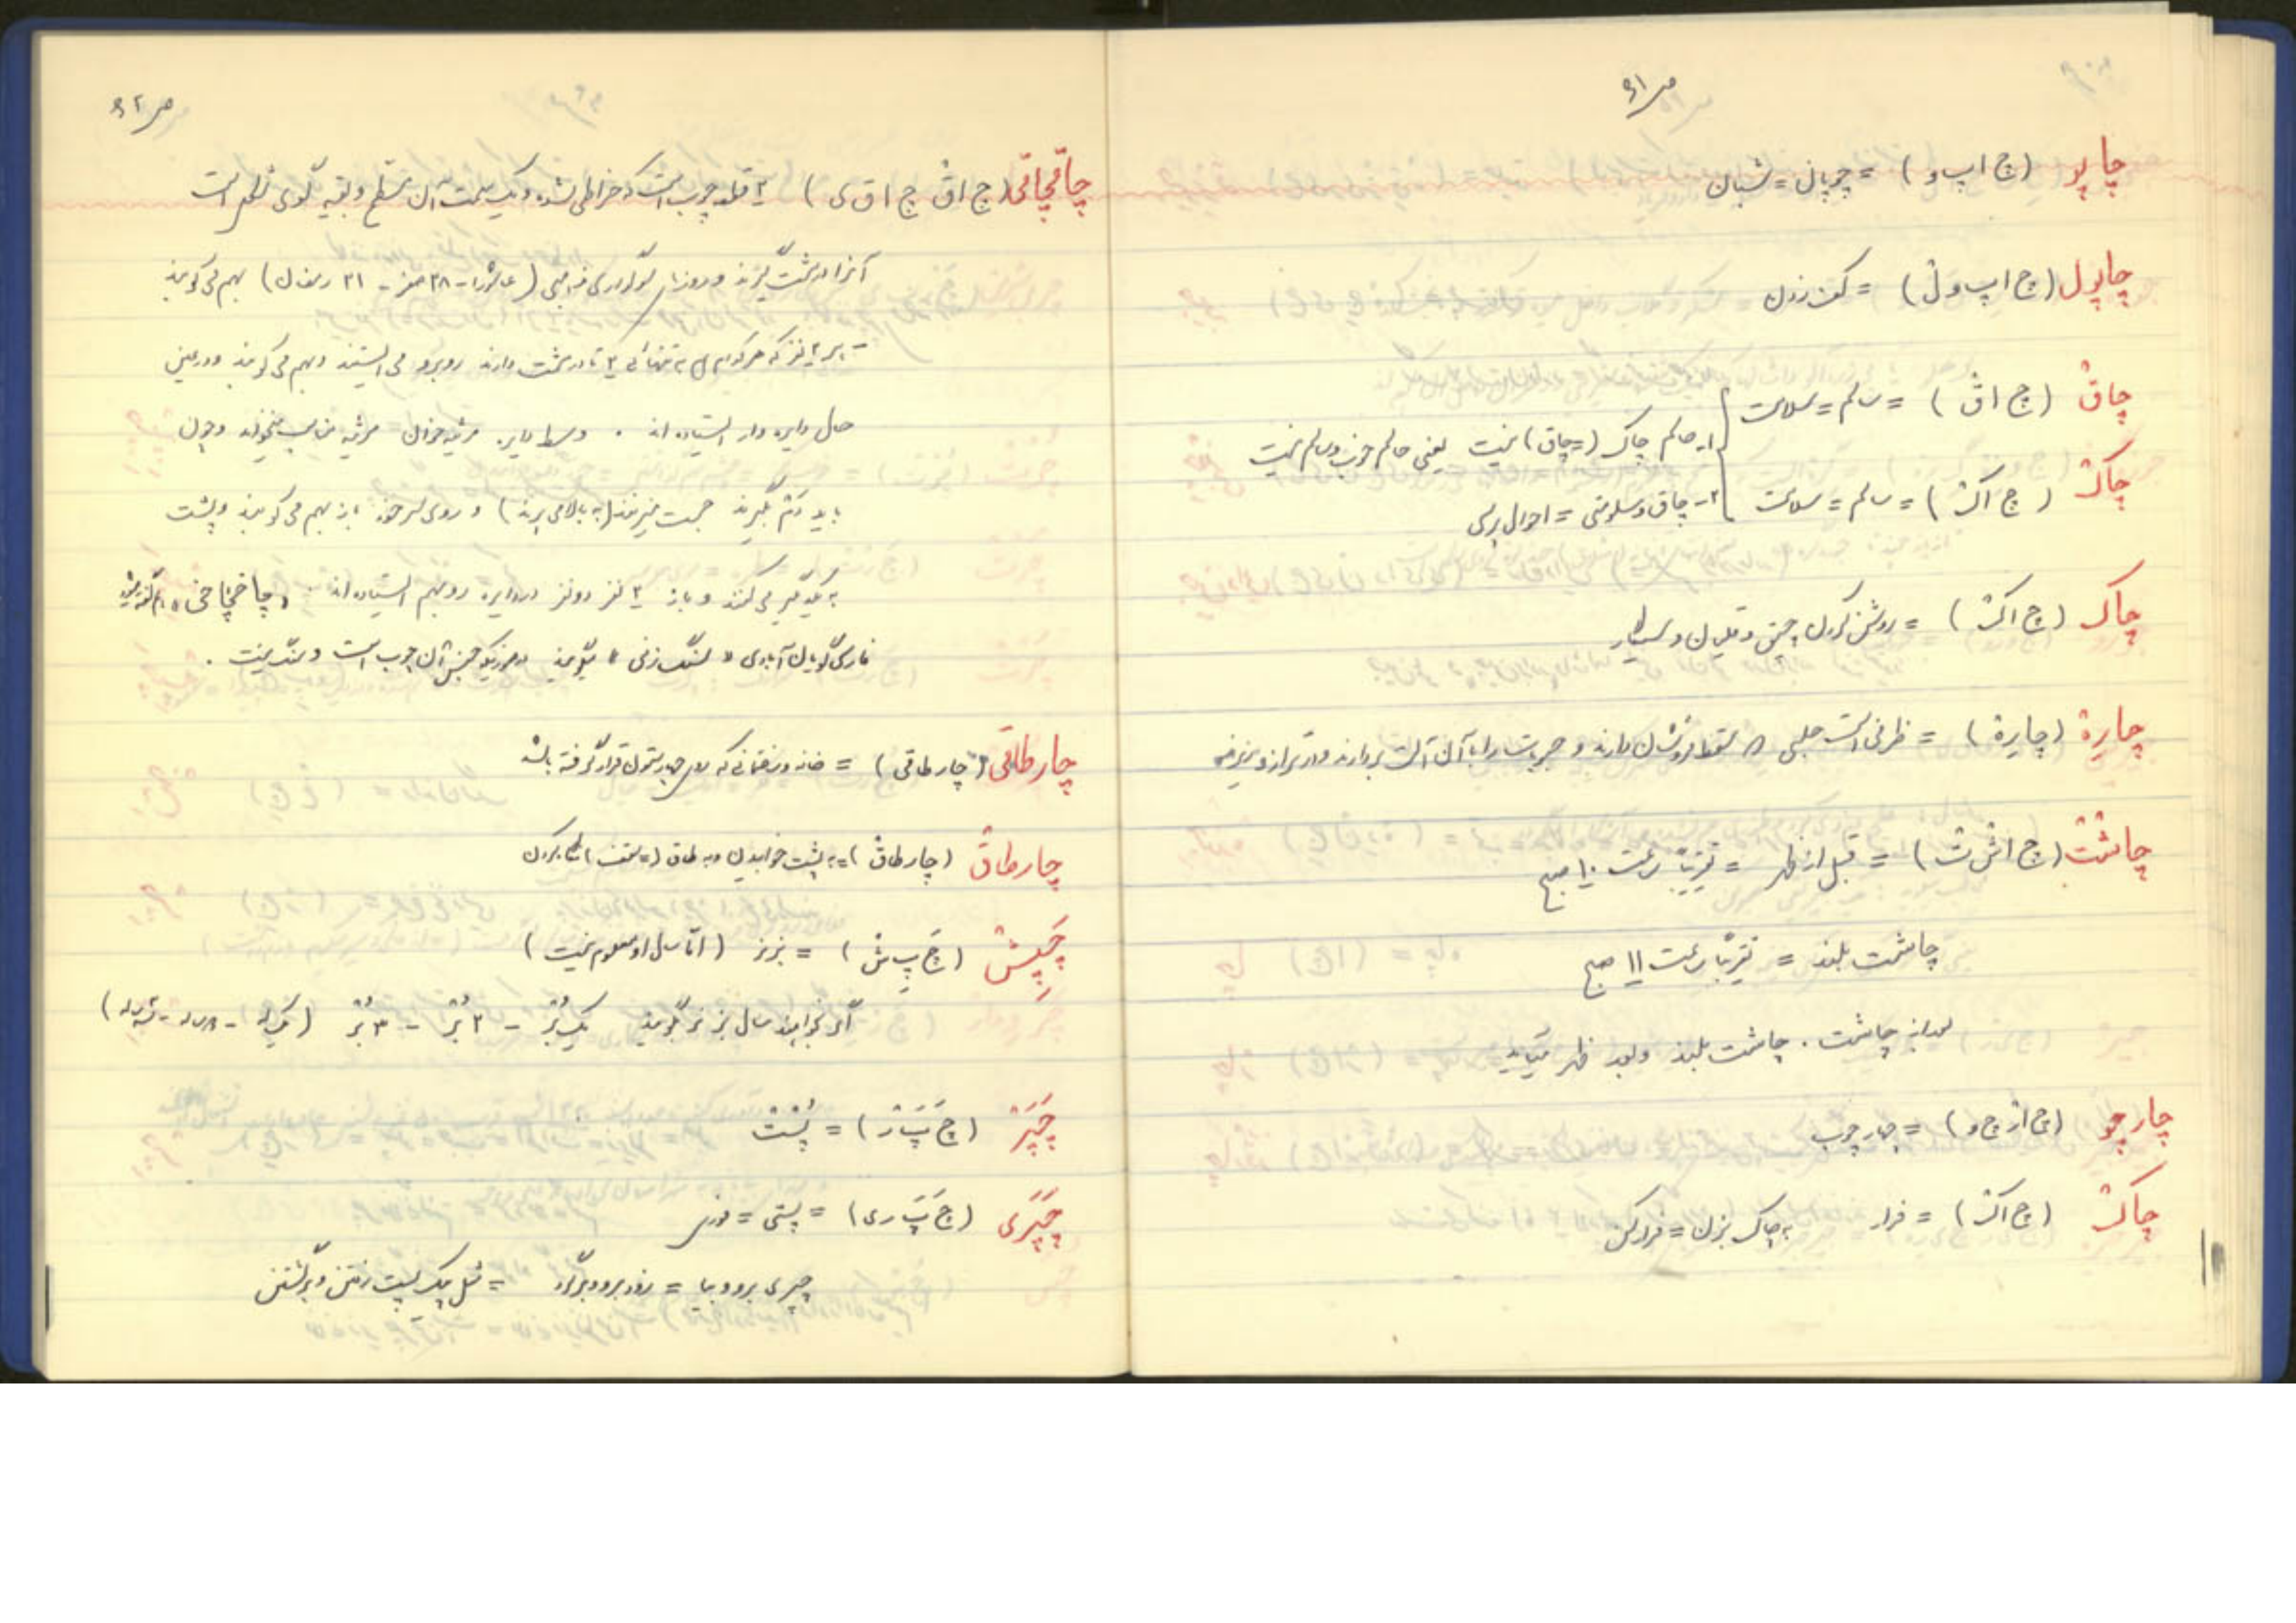 ص ۹۱
چاپو (چ ا پ و) = چوپان = شبان
چاپول (چ ا پ و ل) = کف زدن
چاق (چ ا ق) = سالم = سلامت
۱- حالم چاک (= چاق) نیست یعنی حالم خوب و سالم نیست
چاک (چ ا ک) = سالم = سلامت
۲- چاق و سلومتی = احوال پرسی
چاک (چ ا ک) = روشن کردن چپق و قلیان و سیگار
چارِة (چارِة) = ظرفی است حلبی که سقط فروشان دارند و حبوبات را با آن آلت بردارند و در ترازو بریزند
چاشت (چ ا ش ت) = قبل از ظهر = تقریباً ساعت ۱۰ صبح
چاشت بلند = تقریباً ساعت ۱۱ صبح
بعد از چاشت، چاشت بلند و بعد ظهر میآید
چارچو (چ ا ر چ و) = چارچوب
چاک (چ ا ک) = فرار به چاک بزن = فرار کن
ص ۹۲
چاقچاقی (چ ا ق چ ا ق ی) ۲ قطعه چوب است که خراطی شده و یک سمت آن مسطح و بقیه گوی شکل است
آنرا در مشت گیرند و روزهای سوگواری مذهبی (عاشورا - ۲۸ صفر - ۲۱ رمضان) بهم می کوبند
نفر که هرکدام به تنهائی ۲ تا در مشت دارند روبرو می ایستند و بهم می کوبند و در عین
حال دایره وار ایستاده اند. وسط دایره مرثیه خوان مرثیه مناسب میخواند و چون
باید دَم بگیرند جست میزنند (به بالا می پرند) و روی سر خود باز بهم می کوبند و پشت
به یکدیگر می کنند و باز ۲ نفر دو نفر در دایره روبهم ایستاده اند. «چاخچاخی» هم گفته میشود
فارسی گویان آبادی «سنگ زنی» میگویند در صورتیکه جنس آن چوب است و سنگ نیست.
چارطاقی (چارطاقی) = خانه و ساختمانی که روی چهار ستون قرار گرفته باشد
چارطاق (چارطاق) = به پشت خوابیدن و به طاق (= سقف) نگاه کردن
چَپِش (چَ پِ ش) = بز نر (اما سال او معلوم نیست)
اگر بخواهند سال بز نر بگویند یک بُر - ۲ بُر - ۳ بُر (یکساله - دو ساله - سه ساله)
چَپَر (چَ پَ ر) = پُشت
چَپَری (چَ پَ ری) = پستی = فوری
چپری برو و بیا = زود برو و برگرد = مثل پیک پست رفتن و برگشتن